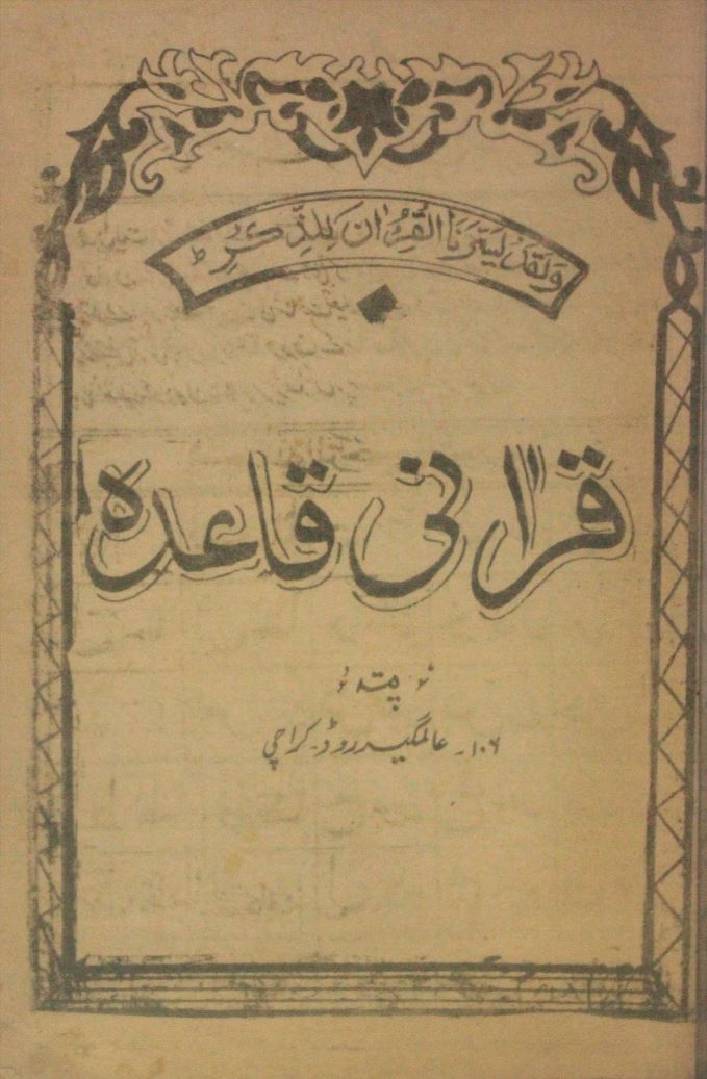 وَلَقَدْ يَسَّرْنَا الْقُرْاٰنَ لِلذِّكْرِ ط
قرآنی قاعدہ
پتہ
۱۰۶۔ عالمگیر روڈ۔ کراچی